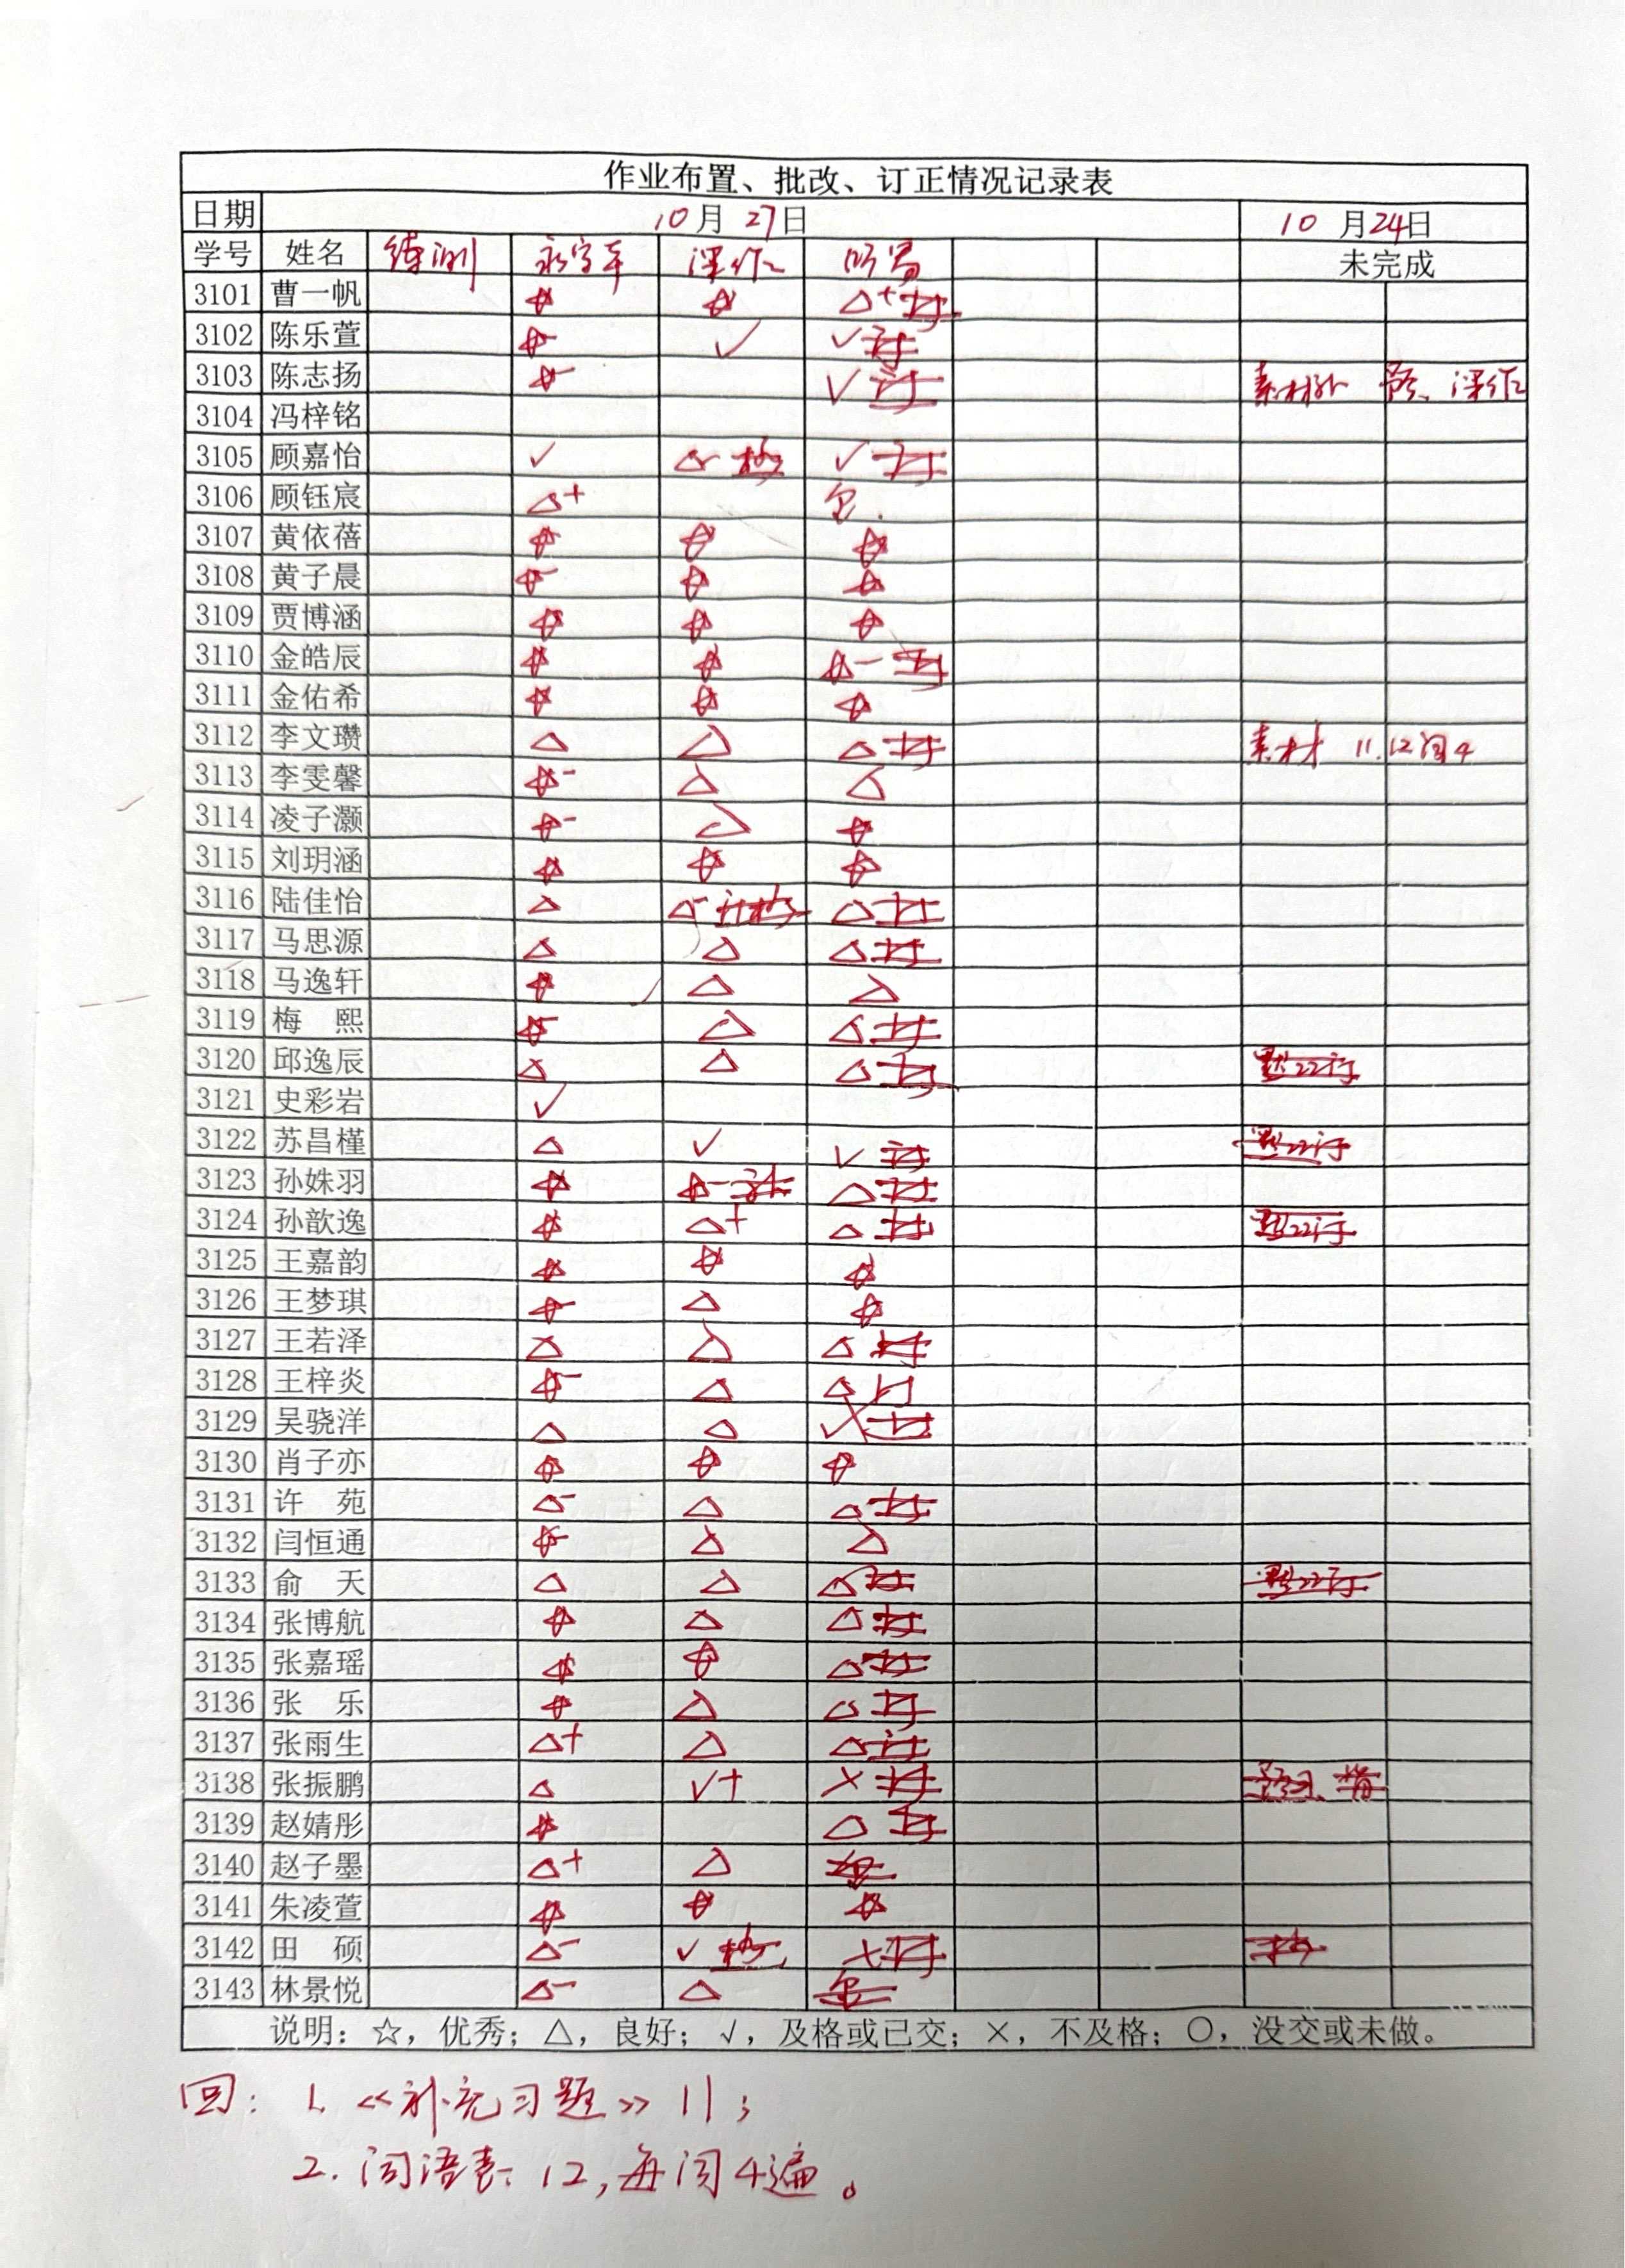 作业布置、批改、订正情况记录表
日期 10月27日 10月24日
学号 姓名 练测 课作 听写 未完成
3101 曹一帆 ☆ ☆ △+订
3102 陈乐萱 ☆- √ √订
3103 陈志扬 ☆- √订 课作
3104 冯梓铭
3105 顾嘉怡 √ △- √订
3106 顾钰宸 △+
3107 黄依蓓 ☆ ☆ ☆
3108 黄子晨 ☆- ☆ ☆
3109 贾博涵 ☆ ☆ ☆
3110 金皓辰 ☆ ☆ ☆-订
3111 金佑希 ☆ ☆ ☆
3112 李文瓒 △ △ △订 素材 11.12词4
3113 李雯馨 ☆- △ △
3114 凌子灏 ☆- △ ☆
3115 刘玥涵 ☆ ☆ ☆
3116 陆佳怡 △ △- △订
3117 马思源 △ △ △订
3118 马逸轩 ☆ △ △
3119 梅 熙 ☆- △ △订
3120 邱逸辰 △ △ △订 默22订
3121 史彩岩 √
3122 苏昌槿 △ √ √订 默22订
3123 孙姝羽 ☆ ☆- △订
3124 孙歆逸 ☆ △+ △订 默22订
3125 王嘉韵 ☆ ☆ ☆
3126 王梦琪 ☆- △ ☆
3127 王若泽 △ △ △订
3128 王梓炎 ☆- △ △订
3129 吴骁洋 △ △ 订
3130 肖子亦 ☆ ☆ ☆
3131 许 苑 △- △ △订
3132 闫恒通 ☆- △ △
3133 俞 天 △ △ △订 默22订
3134 张博航 ☆ △ △订
3135 张嘉瑶 ☆ ☆ △订
3136 张 乐 ☆ △ △订
3137 张雨生 △+ △ △订
3138 张振鹏 △ √+ ×订
3139 赵婧彤 ☆ △订
3140 赵子墨 △+ △
3141 朱凌萱 ☆ ☆ ☆
3142 田 硕 △- √ ×订
3143 林景悦 △- △
说明：☆，优秀；△，良好；√，及格或已交；×，不及格；○，没交或未做。
回：1.《补充习题》11；
2.词语表：12，每词4遍。